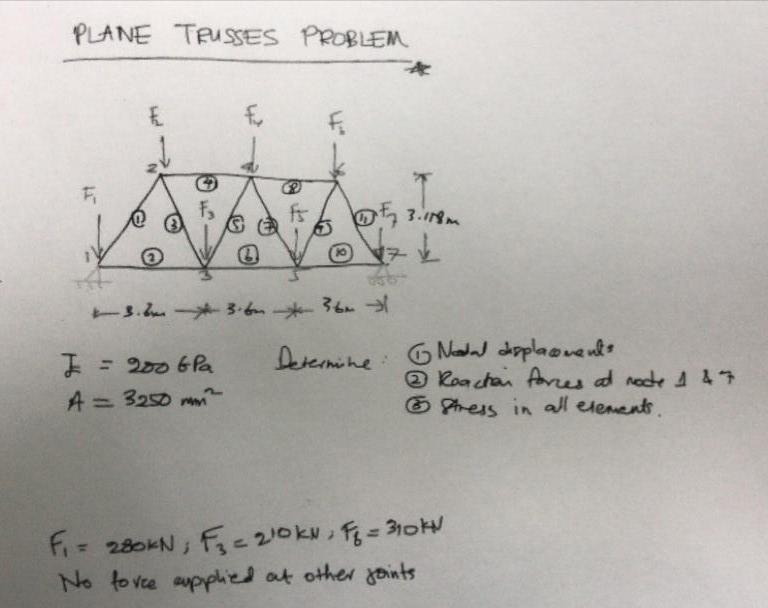 PLANE TRUSSES PROBLEM
F2 F4 F6
2 4 6
④ ⑧
F1 F3 F5 F7
① ③ ⑤ ⑦ ⑨ ⑪ 3.118m
② ⑥ ⑩
1 3 5 7
3.6m 3.6m 3.6m
E = 200 GPa
A = 3250 mm²
Determine : ① Nodal displacements
② Reaction forces at node 1 & 7
③ Stress in all elements.
F1 = 280kN ; F3 = 210kN ; F6 = 310kN
No force applied at other joints